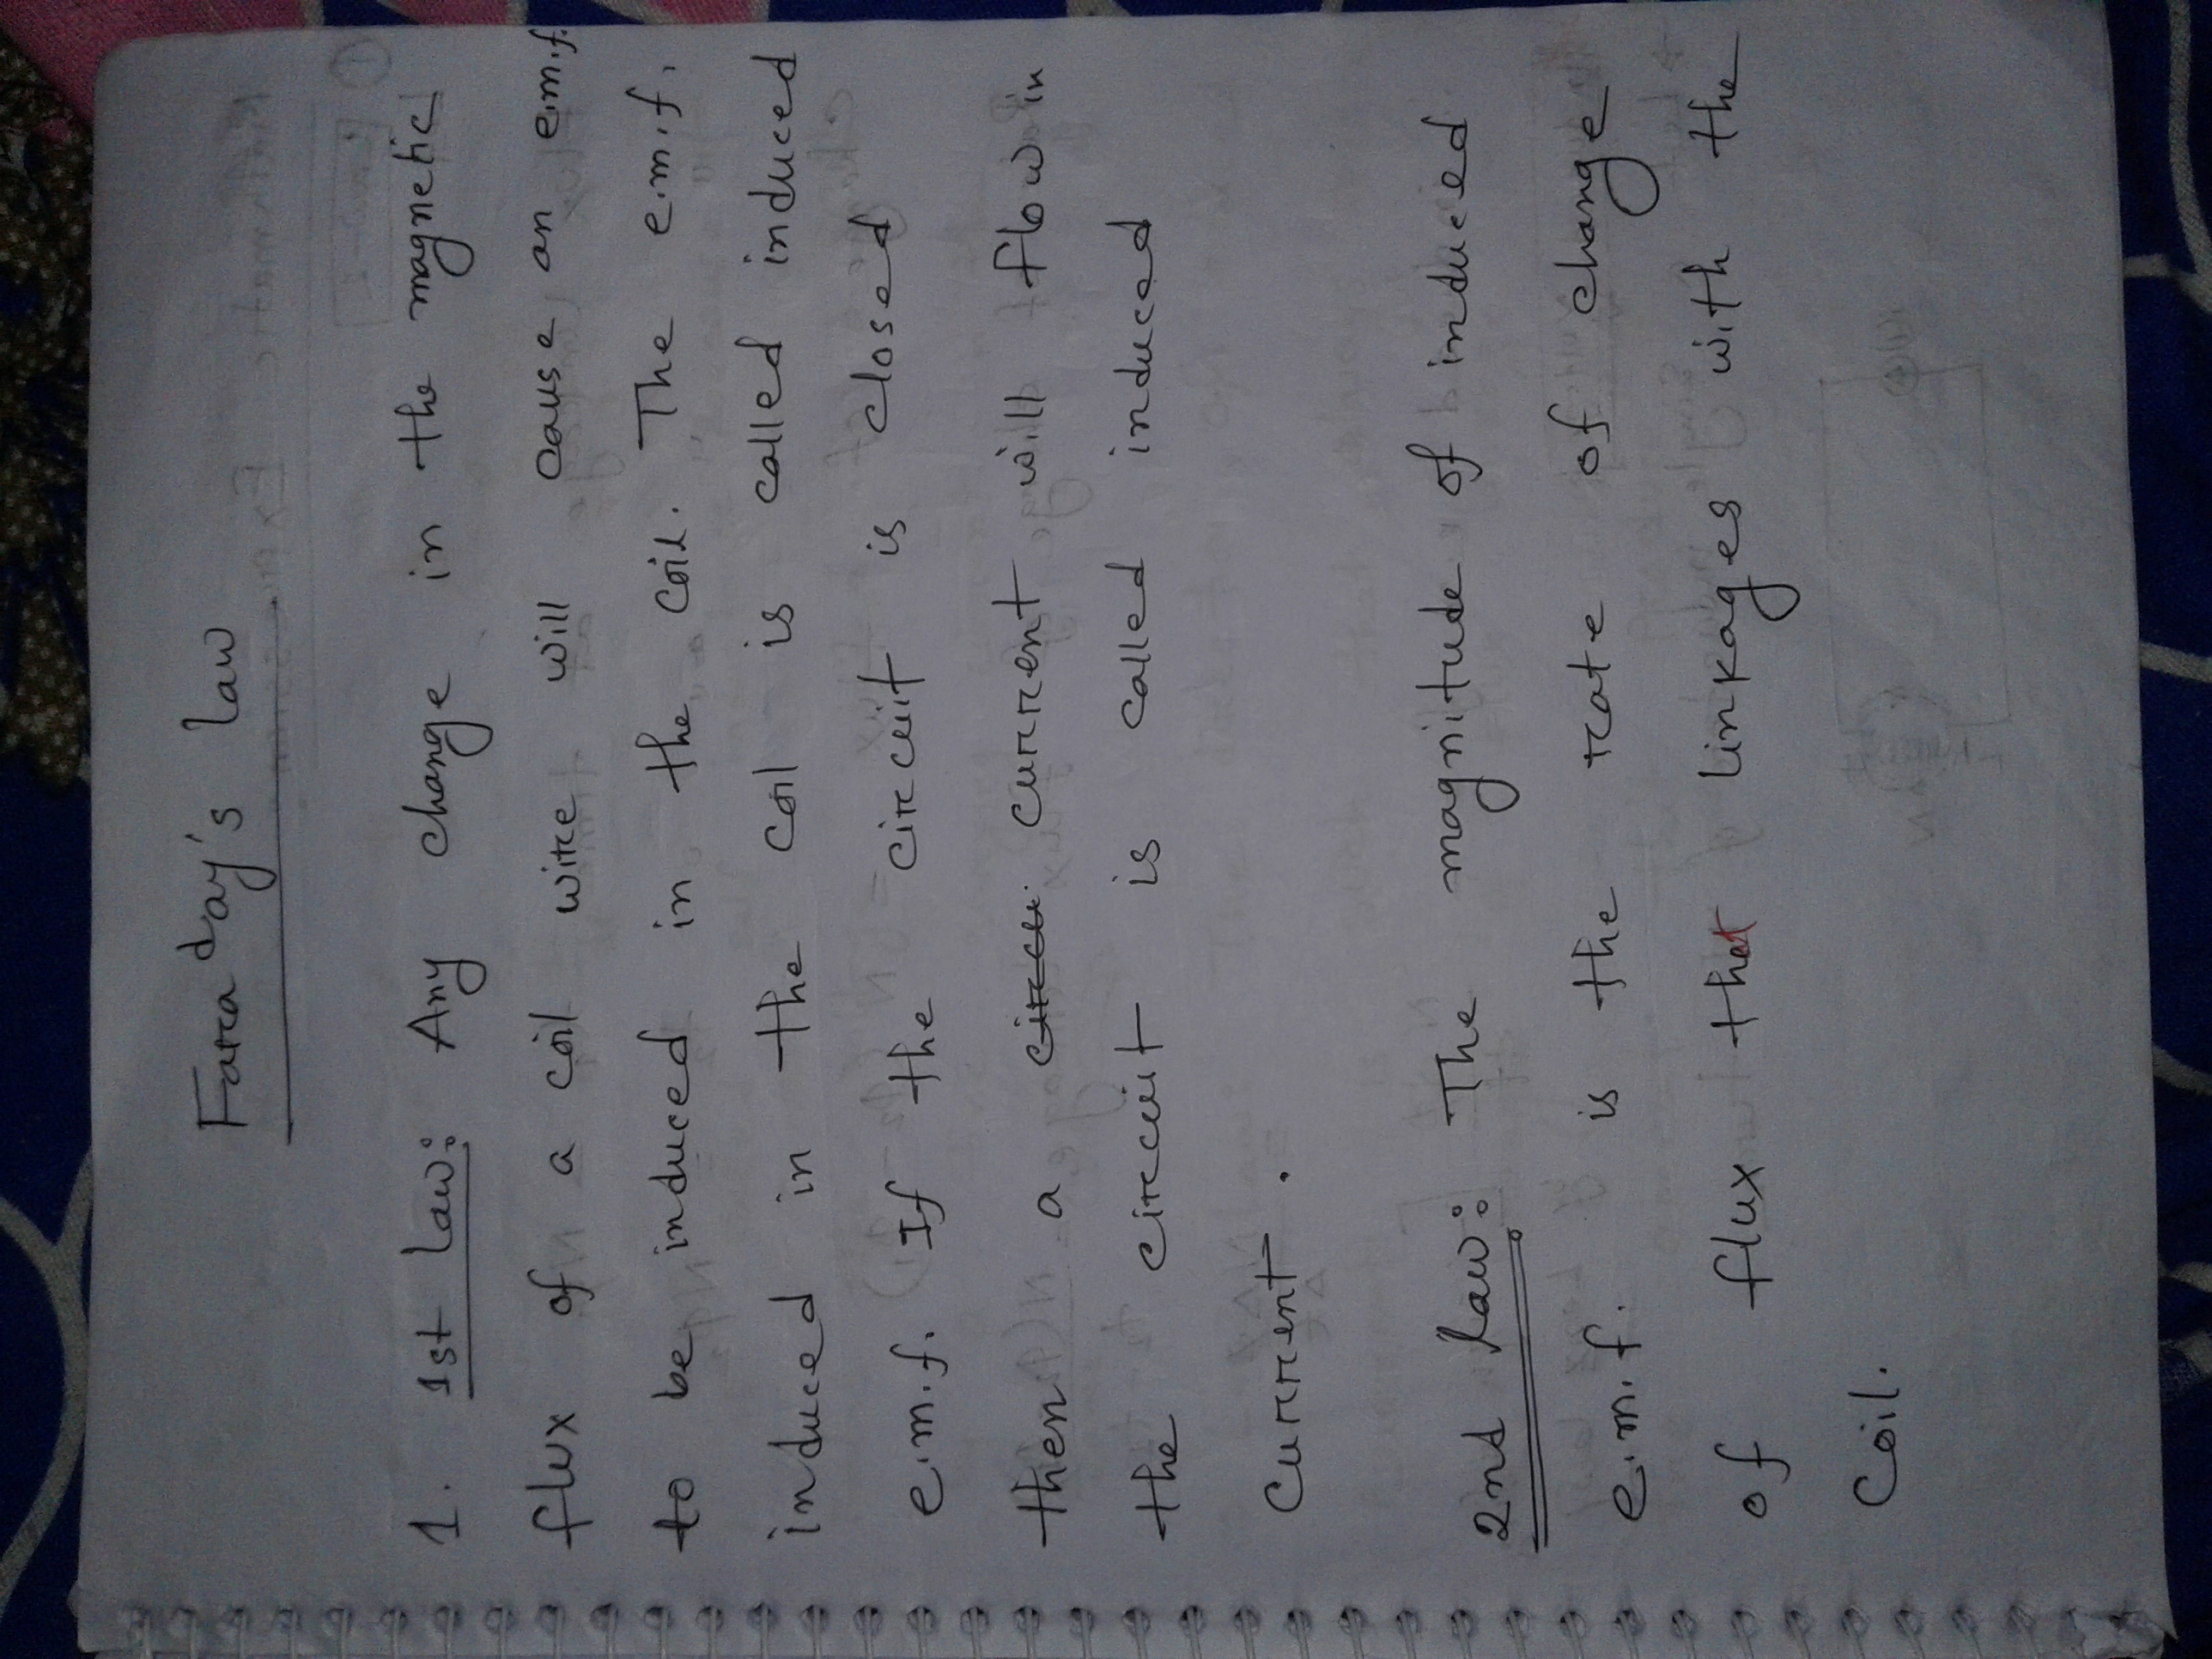 Faraday's law
1. 1st law: Any change in the magnetic
flux of a coil wire will cause an e.m.f.
to be induced in the coil. The e.m.f.
induced in the coil is called induced
e.m.f. If the circuit is closed
then a circu current will flow in
the circuit is called induced
current.
2nd law: The magnitude of induced
e.m.f. is the rate of change
of flux that linkages with the
Coil.